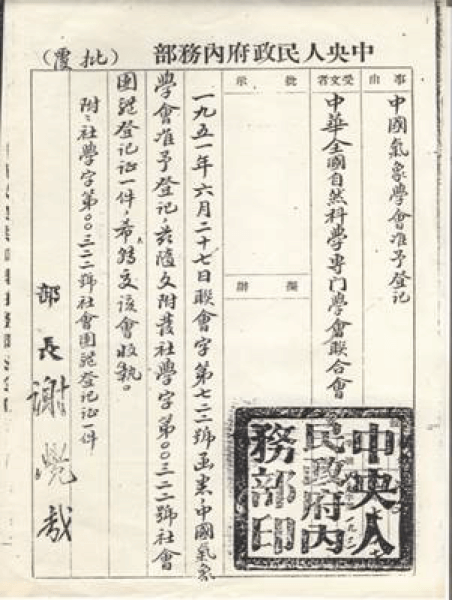 中央人民政府內務部（批覆）
事由
中國氣象學會准予登记
受文者
中華全國自然科學專门學會联合會
批示
擬辦
一九五一年六月二十七日联會字第七二二號函悉，中國氣象
學會准予登记，兹隨文附發社學字第00三二二號社會
团體登记证一件，希轉交该會收執。
附：社學字第00三二二號社會团體登记证一件
部長 謝覺哉
中央人
民政府內
務部印